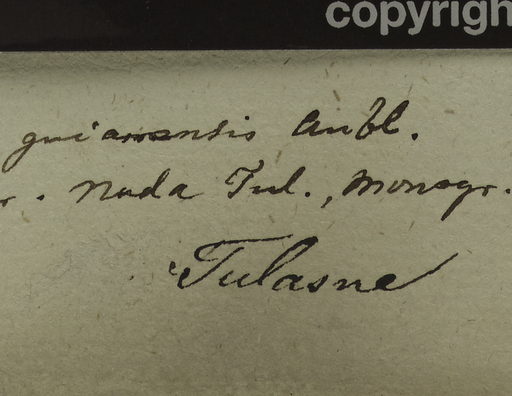 copyrigh
guianensis Aubl.
r. nuda Tul., Monogr.
Tulasne